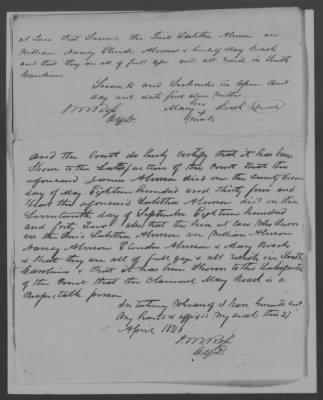 at Law that Survive the Said Talitha Almon are
William Nancy Elender Almon & Mary Roach
and that they are all of full age and all reside in South
Carolina
Sworn to and Subscribed in open Court
day and date first above written
her
Mary + Roach
mark
And the Court do hereby certify that it has been
Shown to the Satisfaction of the Court that the
aforesaid James Almon died on the Twenty
day of May Eighteen hundred and thirty five and
that the aforesaid Talitha Almon died on the
Seventeenth day of September Eighteen hundred
and forty Two & also that the heirs at Law Who Survive
her the Said Talitha Almon are William Almon
Nancy Almon Elender Almon & Mary Roach
& that they are all of full age & all reside in South
Carolina & that it has been Shown to the Satisfaction
of the Court that the Claimant Mary Roach is a
Respectable person
In testimony Whereof I have hereunto set
my hand & affixed my seal this 21
April